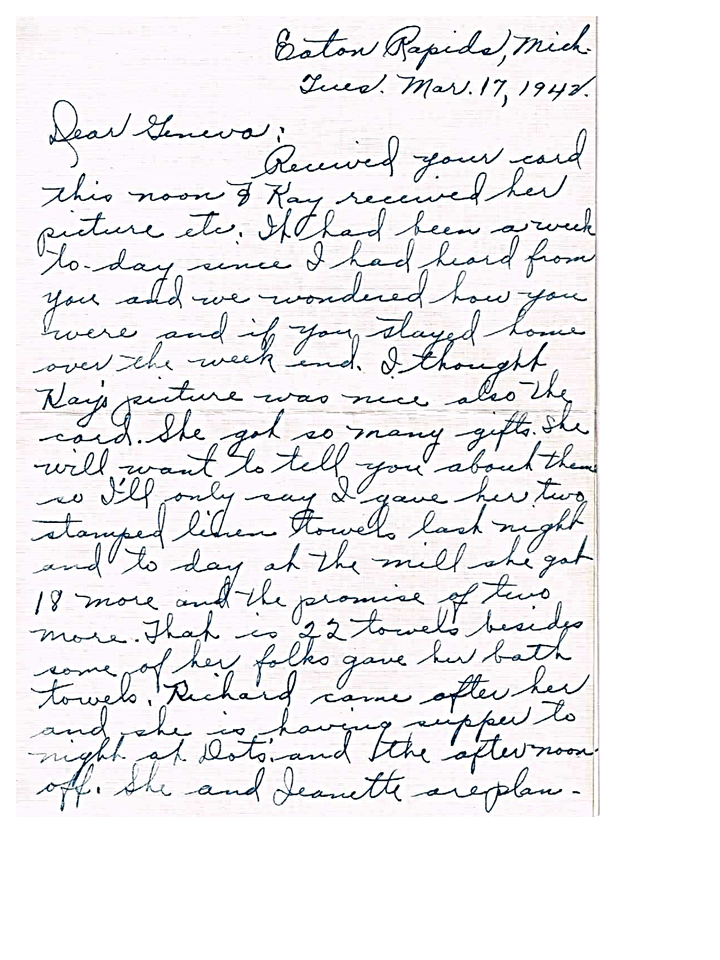 Eaton Rapids, Mich.
Tues. Mar. 17, 1942.
Dear Geneva:
Received your card
this noon & Kay received her
picture etc. It had been a week
to-day since I had heard from
you and we wondered how you
were and if you stayed home
over the week end. I thought
Kay's picture was nice also the
card. She got so many gifts. She
will want to tell you about them
so I'll only say I gave her two
stamped linen towels last night
and to day at the mill she got
18 more and the promise of two
more. That is 22 towels besides
some of her folks gave her bath
towels. Richard came after her
and she is having supper to
night at Dots' and the afternoon
off. She and Jeanette are plan-